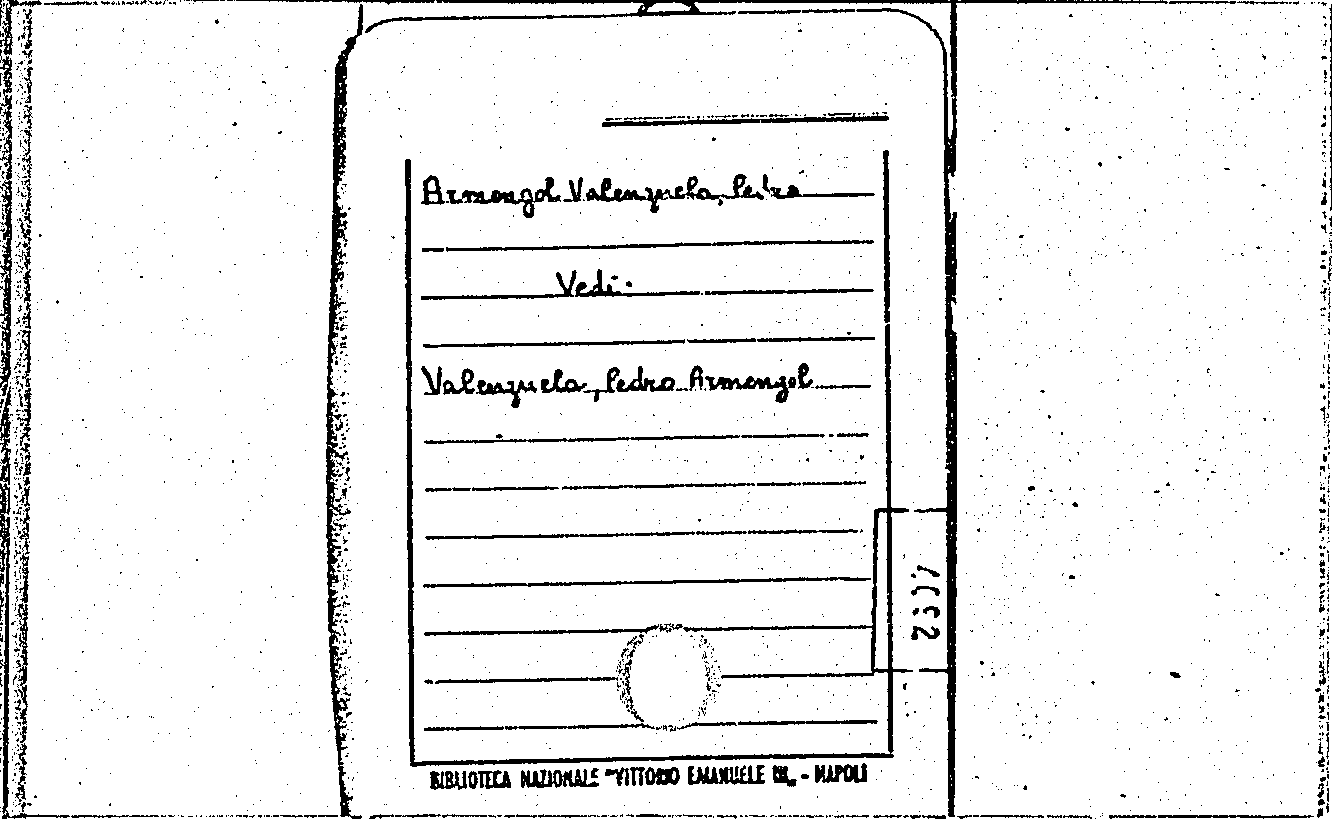 Armengol Valenzuela, Pedro
Vedi:
Valenzuela, Pedro Armengol
BIBLIOTECA NAZIONALE "VITTORIO EMANUELE III" - NAPOLI